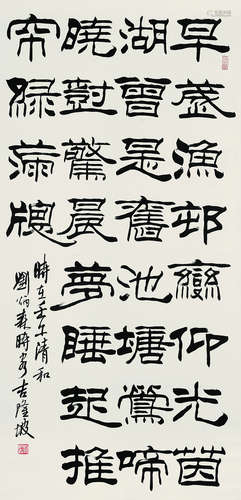 早歲漁邨變仰光茵
湖曾是舊池塘鶯啼
曉對驚晨夢睡起推
帘綠滿牕
時在壬午清和
劉炳森時客吉隆坡